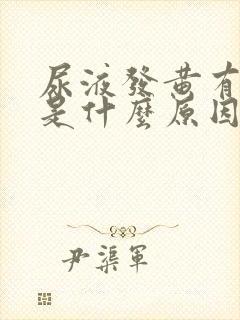 尿液發黄有
是什麼原因
尹渠軍